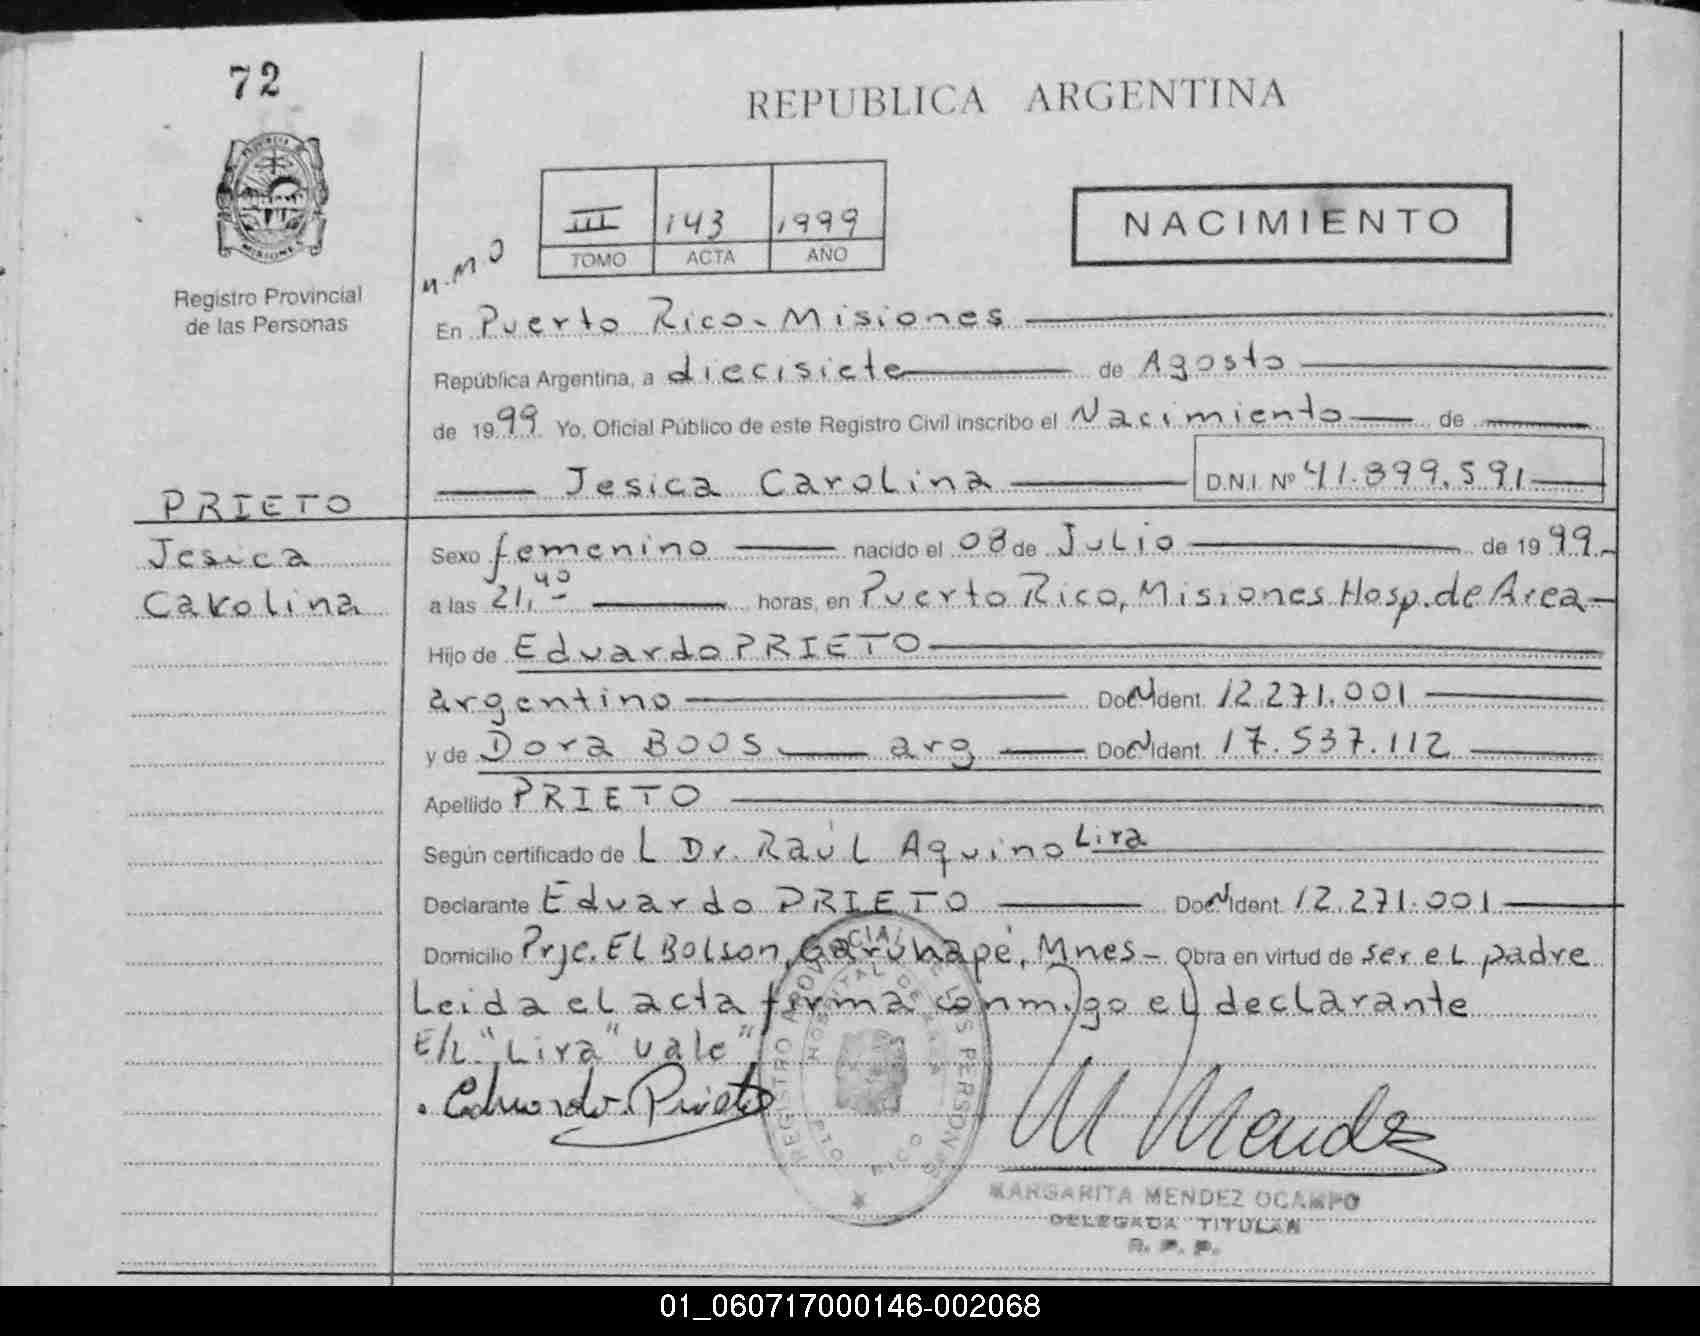 72
REPUBLICA ARGENTINA
III 143 1999
TOMO ACTA AÑO
NACIMIENTO
M.M.O
Registro Provincial
de las Personas
En Puerto Rico - Misiones
República Argentina, a diecisiete de Agosto
de 1999 Yo, Oficial Público de este Registro Civil inscribo el Nacimiento de
Jesica Carolina D.N.I. Nº 41.899.591
PRIETO
Jesica
Carolina
Sexo femenino nacido el 08 de Julio de 1999.
a las 21,40 horas, en Puerto Rico, Misiones Hosp. de Area
Hijo de Eduardo PRIETO
argentino Doc N Ident. 12.271.001
y de Dora BOOS arg Doc N Ident. 17.537.112
Apellido PRIETO
Según certificado de L Dr. Raúl Aquino Lira
Declarante Eduardo PRIETO Doc N Ident. 12.271.001
Domicilio Prje. El Bolson, Garuhapé, Mnes - Obra en virtud de ser el padre
Leida el acta firma conmigo el declarante
E/L "Lira" vale"
Eduardo Prieto
M Mendez
REGISTRO PROVINCIAL DE LAS PERSONAS
HOSPITAL DE AREA
PTO RICO
MARGARITA MENDEZ OCAMPO
DELEGADA TITULAR
R. P. P.
01_060717000146-002068